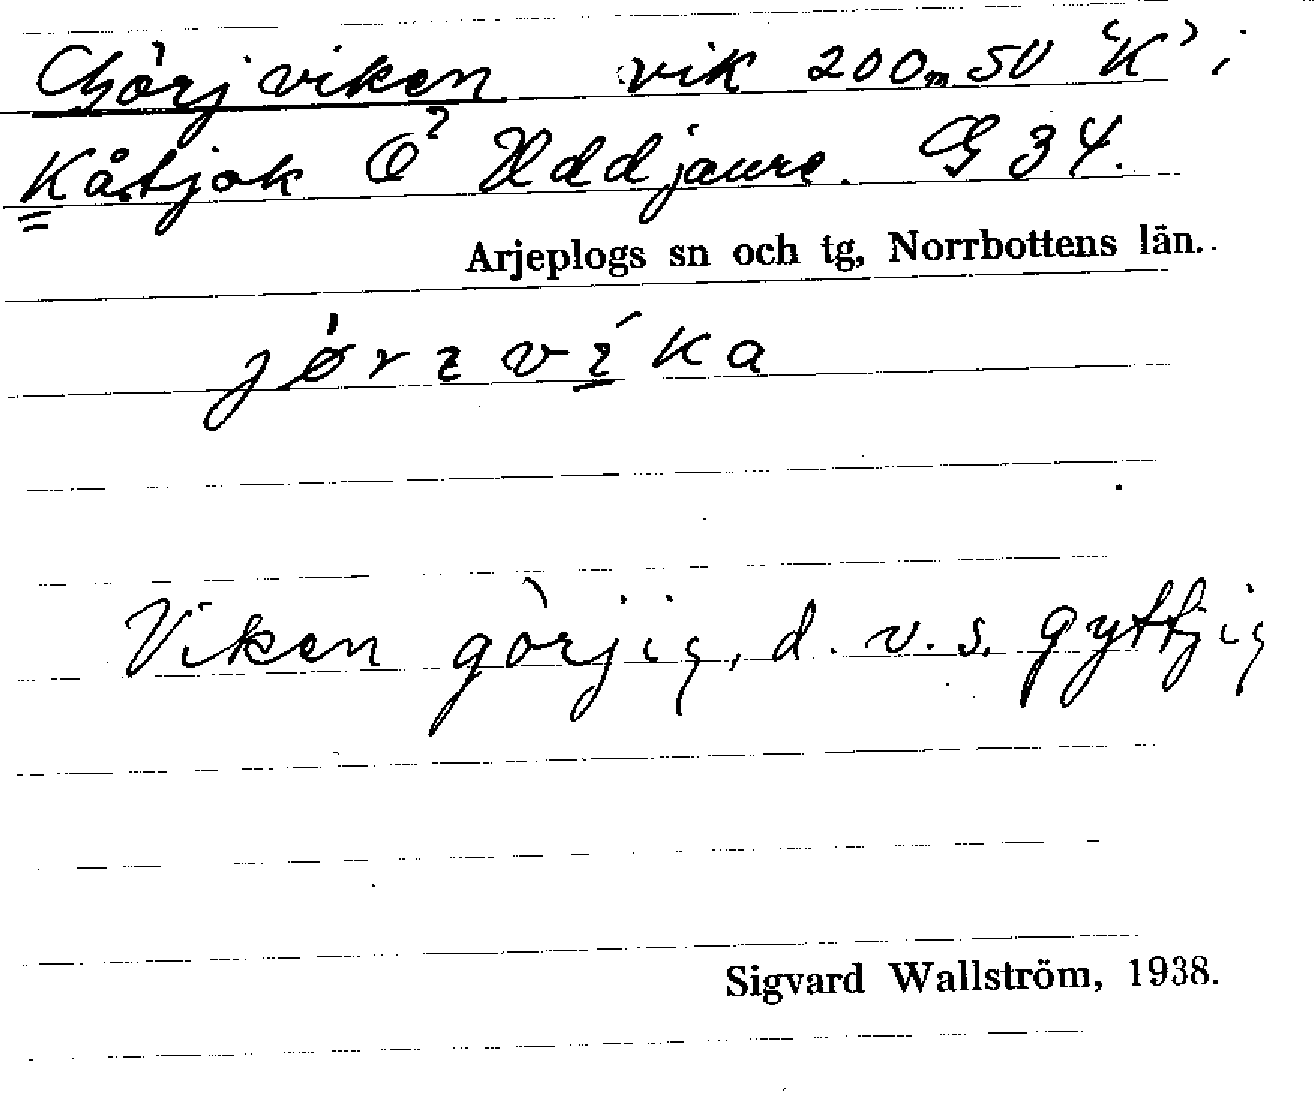 Görjviken vik 200m SV "K" i
Kåtjok Ö? Uddjaure. G 34.
Arjeplogs sn och tg, Norrbottens län.
jørɩvíka
Viken görjig, d. v. s. gyttjig
Sigvard Wallström, 1938.